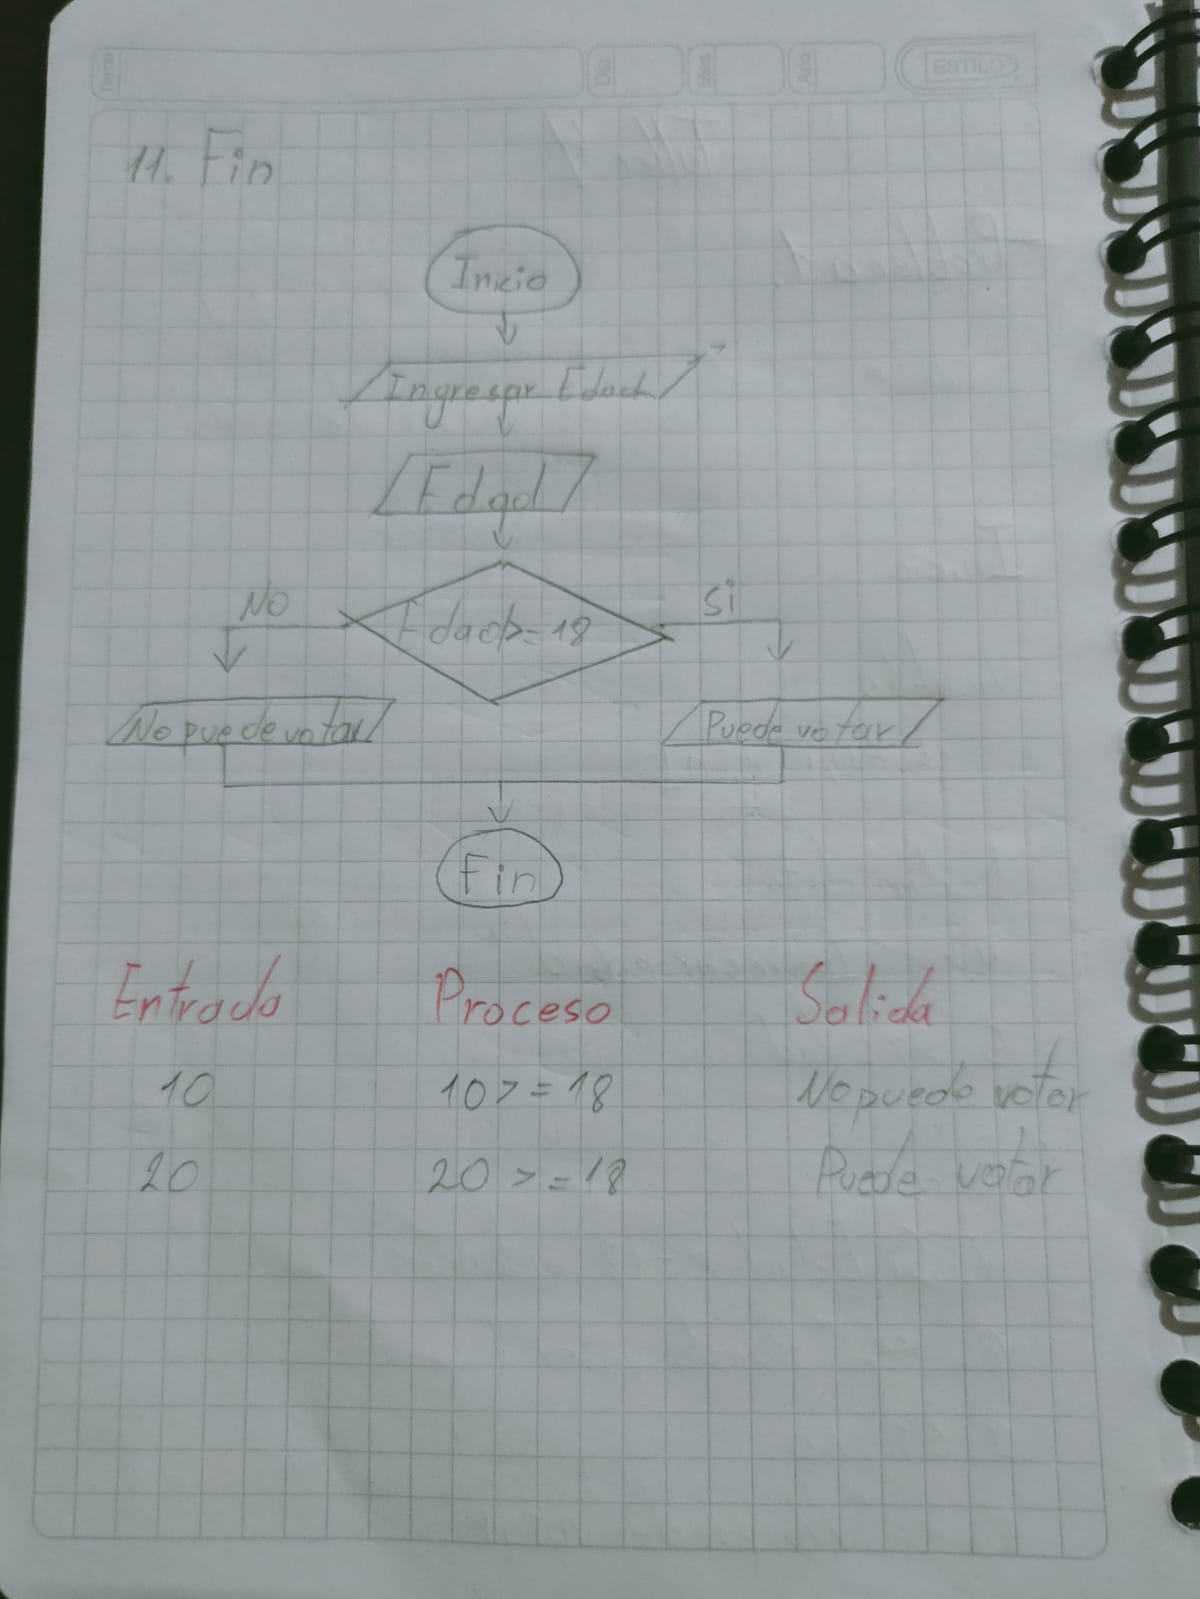 Tema
Día
Mes
Año
ESTILO
11. Fin
Inicio
Ingresar Edad
Edad
No
Edad>=18
Si
No puede votar
Puede votar
Fin
Entrada Proceso Salida
10 10>=18 No puede votar
20 20>=18 Puede votar